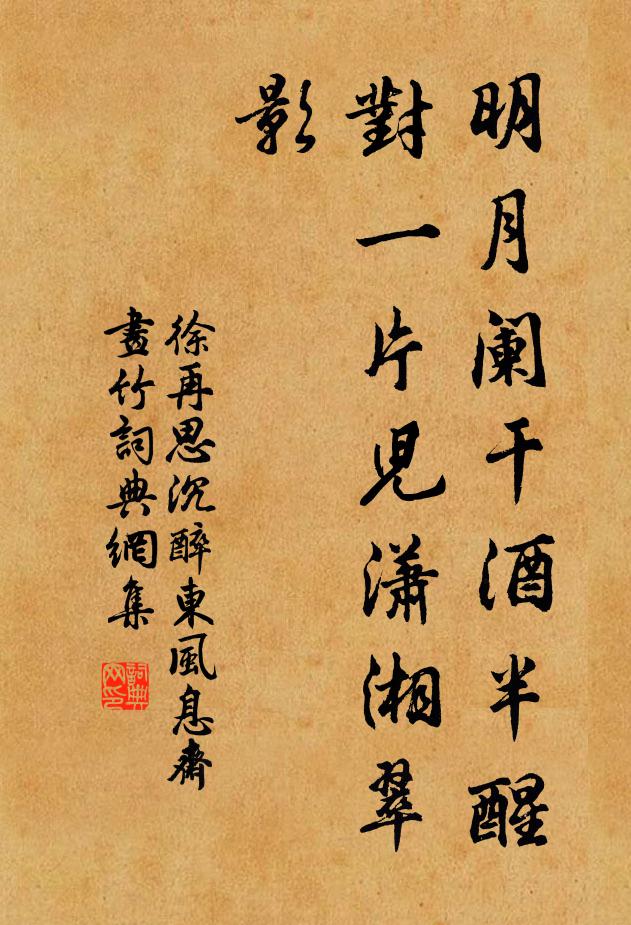 明月阑干酒半醒
對一片兒瀟湘翠
影
徐再思沉醉東風息齋
畫竹詞典網集
詞典网印